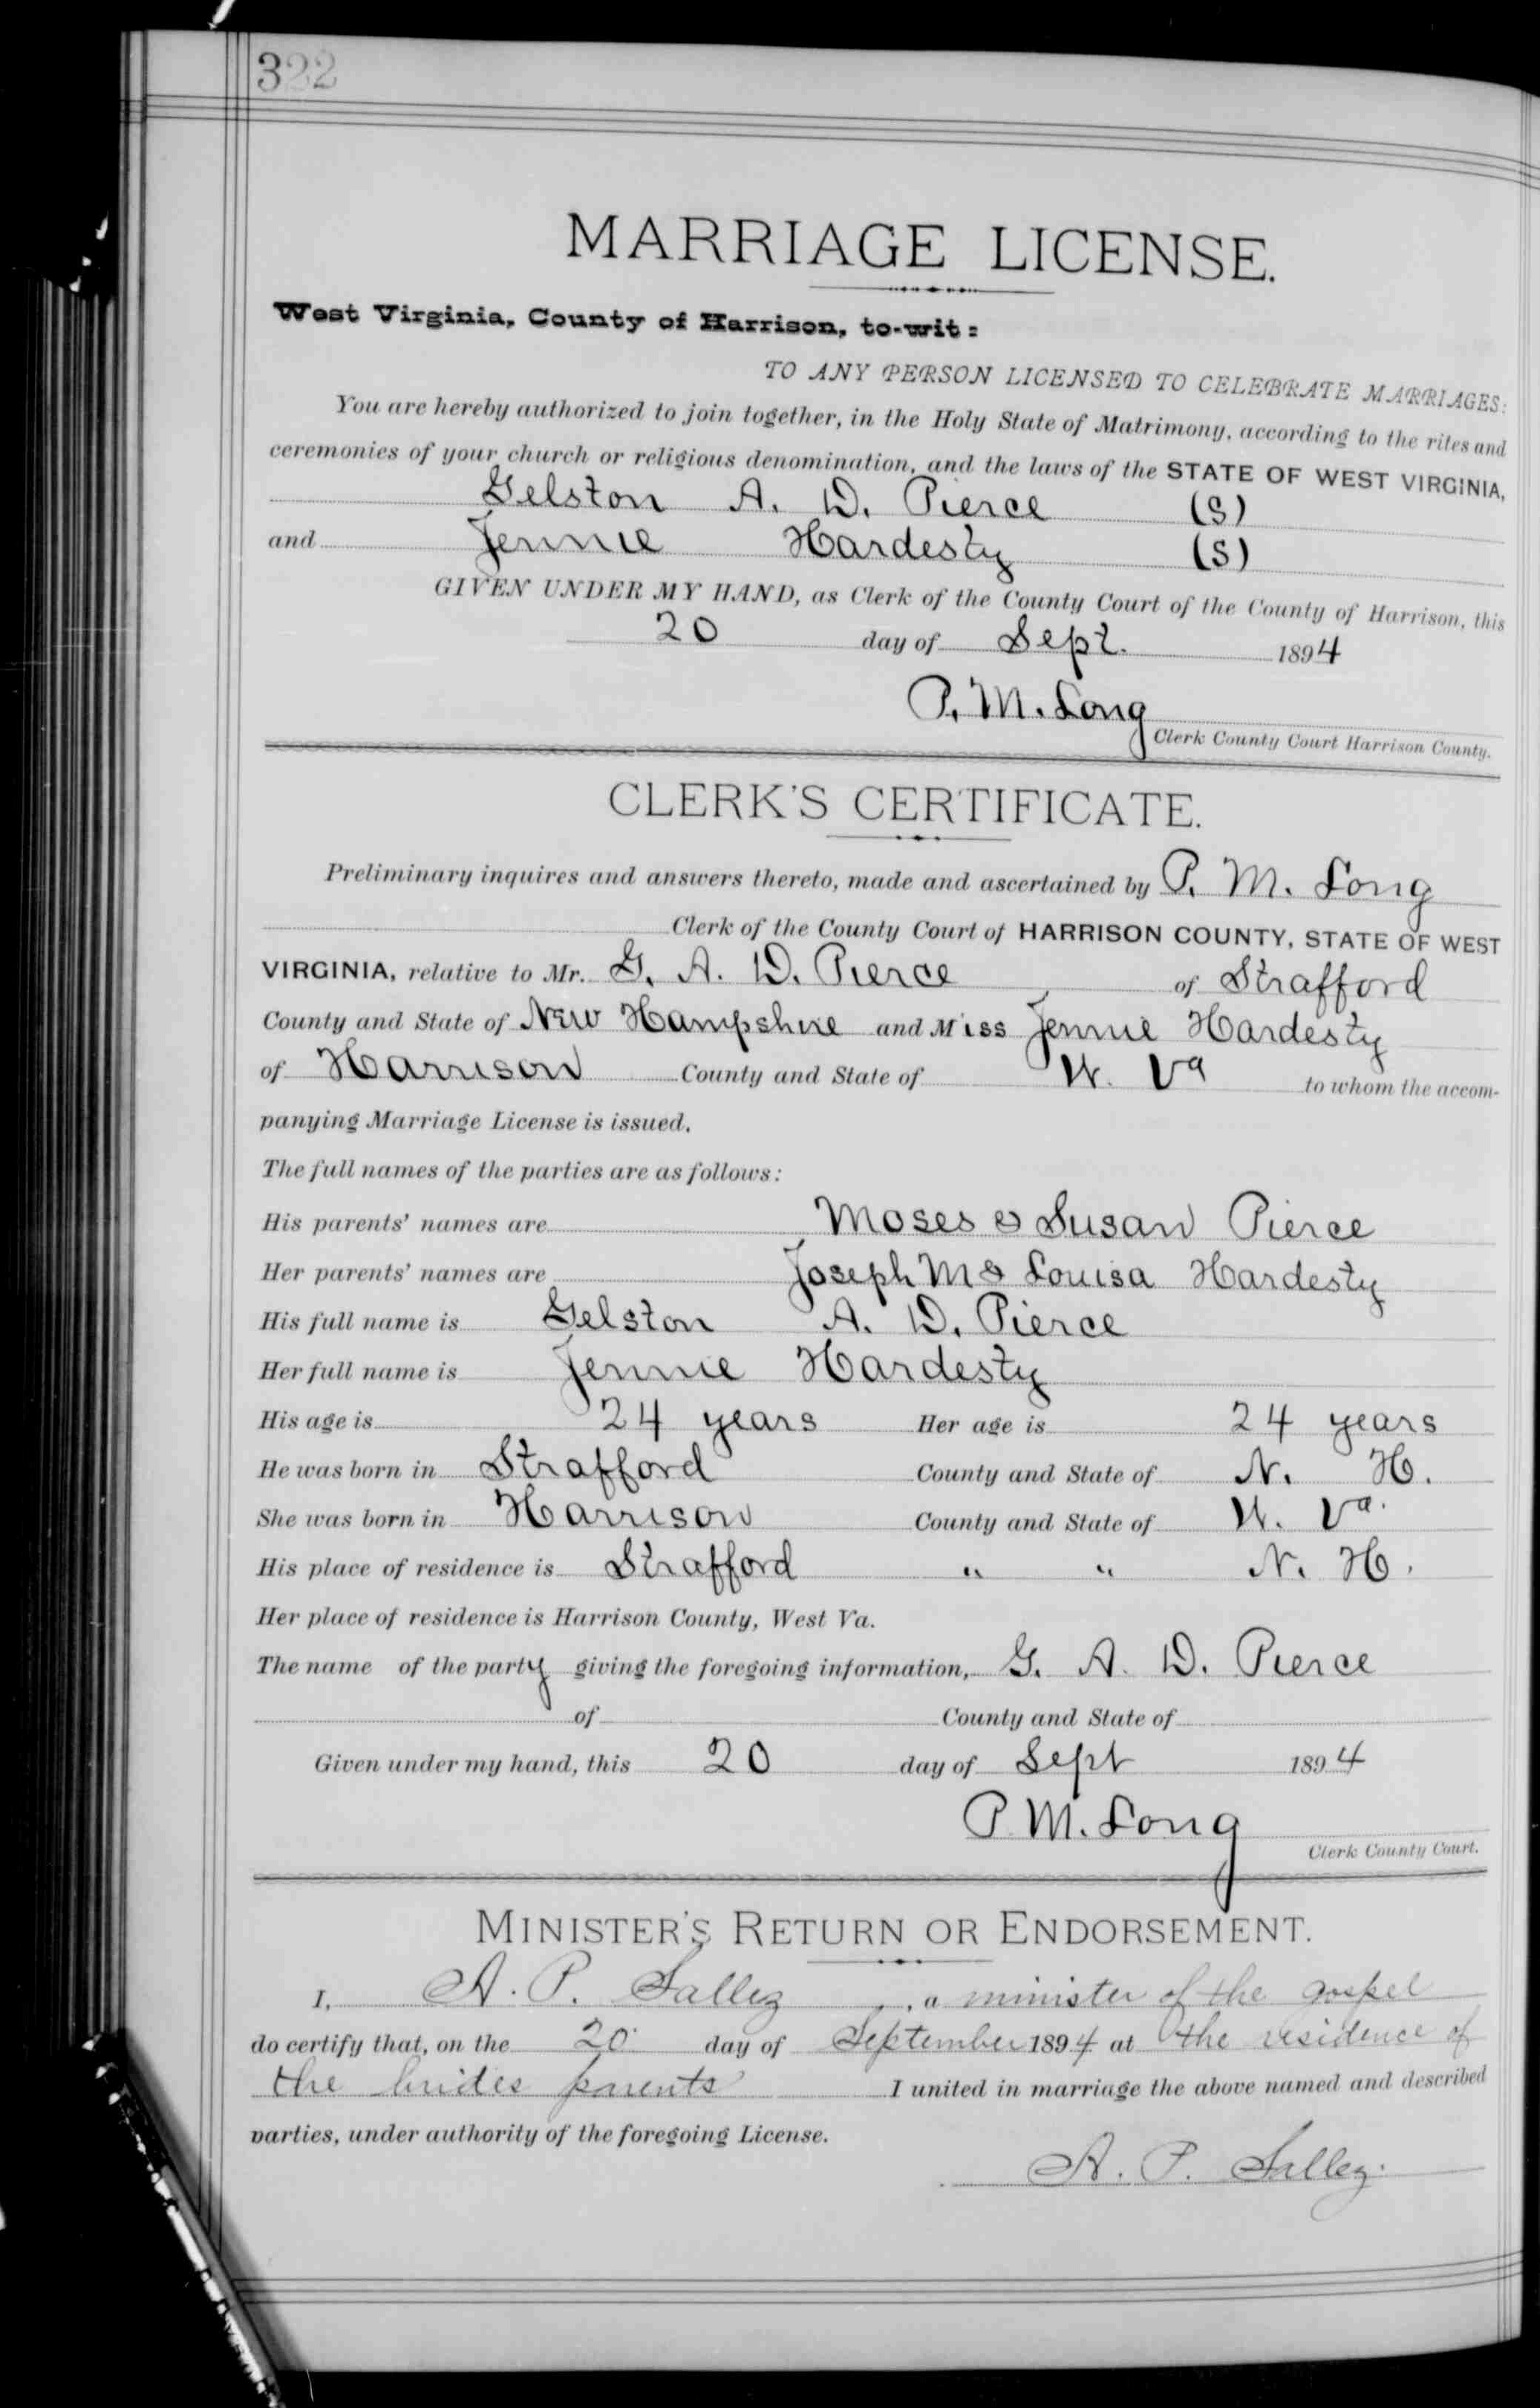 322
MARRIAGE LICENSE.
West Virginia, County of Harrison, to-wit:
TO ANY PERSON LICENSED TO CELEBRATE MARRIAGES:
You are hereby authorized to join together, in the Holy State of Matrimony, according to the rites and
ceremonies of your church or religious denomination, and the laws of the STATE OF WEST VIRGINIA,
Gelston A. D. Pierce (S)
and Jennie Hardesty (S)
GIVEN UNDER MY HAND, as Clerk of the County Court of the County of Harrison, this
20 day of Sept. 1894
P. M. Long
Clerk County Court Harrison County.
CLERK'S CERTIFICATE.
Preliminary inquires and answers thereto, made and ascertained by P. M. Long
Clerk of the County Court of HARRISON COUNTY, STATE OF WEST
VIRGINIA, relative to Mr. G. A. D. Pierce of Strafford
County and State of New Hampshire and Miss Jennie Hardesty
of Harrison County and State of W. Va to whom the accom-
panying Marriage License is issued.
The full names of the parties are as follows:
His parents' names are Moses & Susan Pierce
Her parents' names are Joseph M & Louisa Hardesty
His full name is Gelston A. D. Pierce
Her full name is Jennie Hardesty
His age is 24 years Her age is 24 years
He was born in Strafford County and State of N. H.
She was born in Harrison County and State of W. Va.
His place of residence is Strafford " " N. H.
Her place of residence is Harrison County, West Va.
The name of the party giving the foregoing information, G. A. D. Pierce
of County and State of
Given under my hand, this 20 day of Sept 1894
P. M. Long
Clerk County Court.
MINISTER'S RETURN OR ENDORSEMENT.
I, A. P. , a minister of the gospel
do certify that, on the 20 day of September 1894 at the residence of
the brides parents I united in marriage the above named and described
parties, under authority of the foregoing License.
A. P.